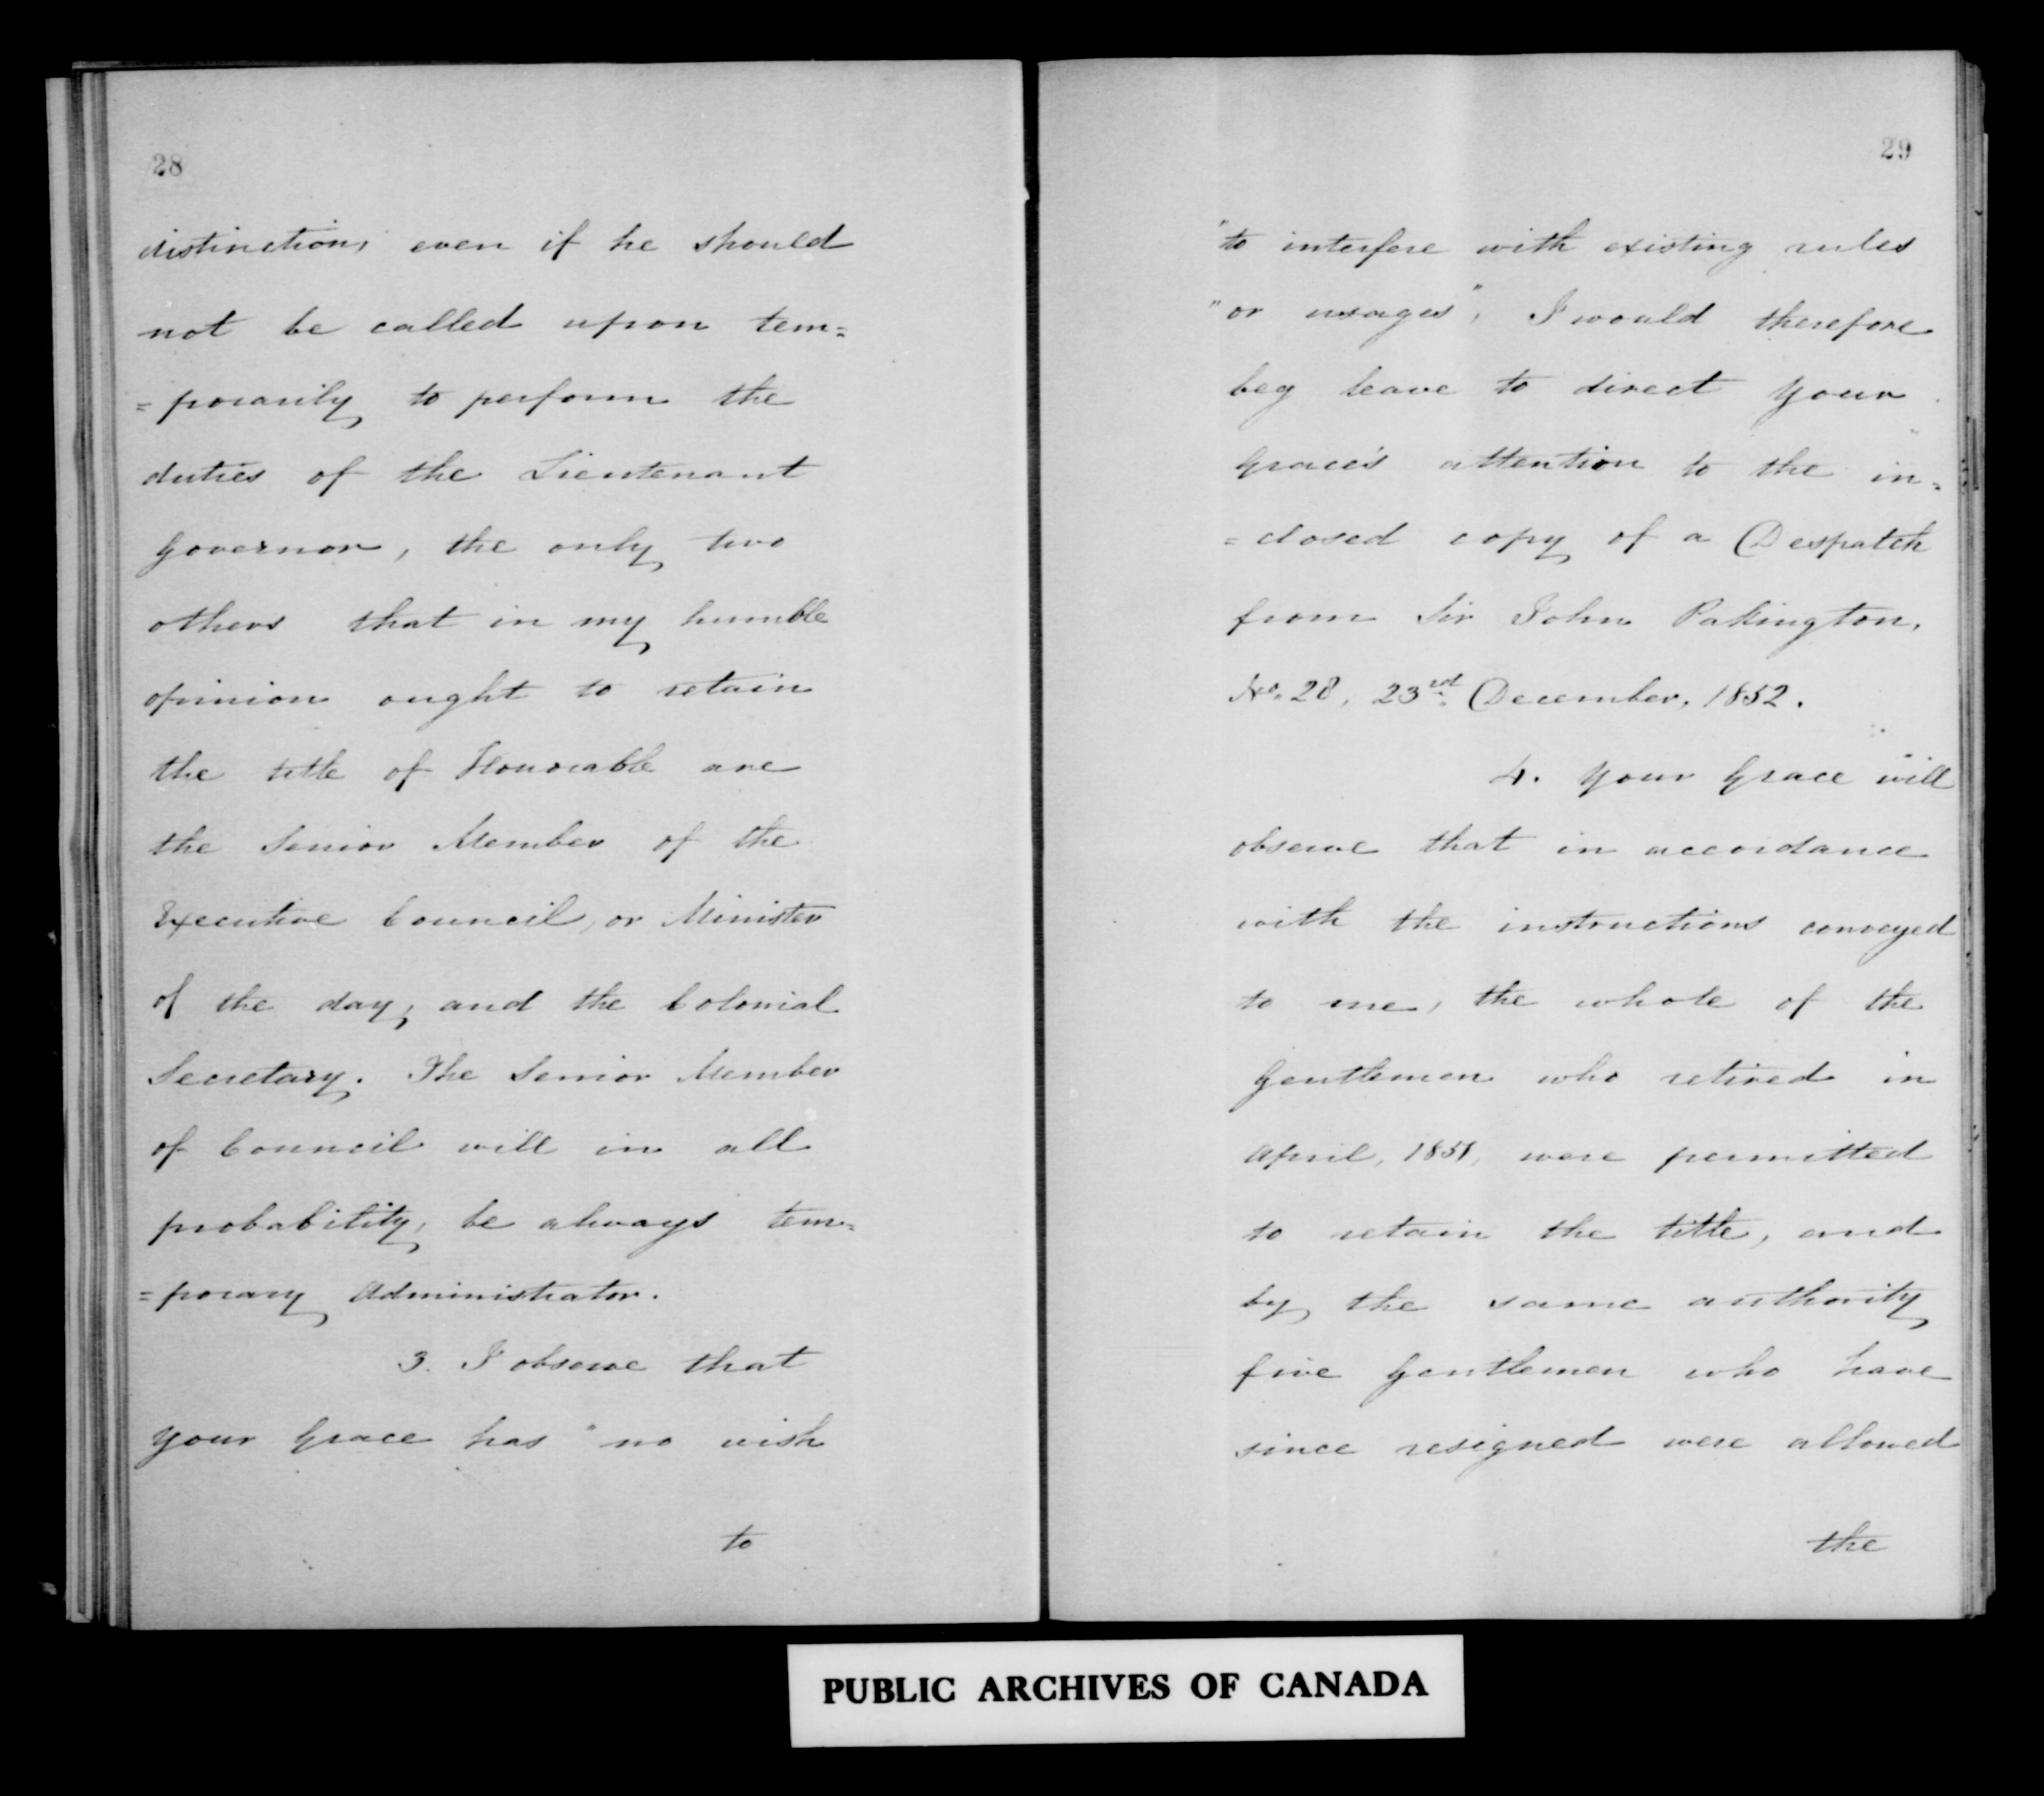 28
distinction, even if he should
not be called upon tem=
=porarily to perform the
duties of the Lieutenant
Governor, the only two
others that in my humble
opinion ought to retain
the title of Honorable are
the Senior Member of the
Executive Council, or Minister
of the day, and the Colonial
Secretary. The Senior Member
of Council will in all
probability, be always tem=
=porary Administrator.
3. I observe that
Your Grace has "no wish
to
29
"to interfere with existing rules
"or usages", I would therefore
beg leave to direct Your
Grace's attention to the in=
=closed copy of a Despatch
from Sir John Pakington,
No. 28, 23rd December, 1852.
4. Your Grace will
observe that in accordance
with the instructions conveyed
to me, the whole of the
Gentlemen who retired in
April, 1851, were permitted
to retain the title, and
by the same authority
five Gentlemen who have
since resigned were allowed
the
PUBLIC ARCHIVES OF CANADA